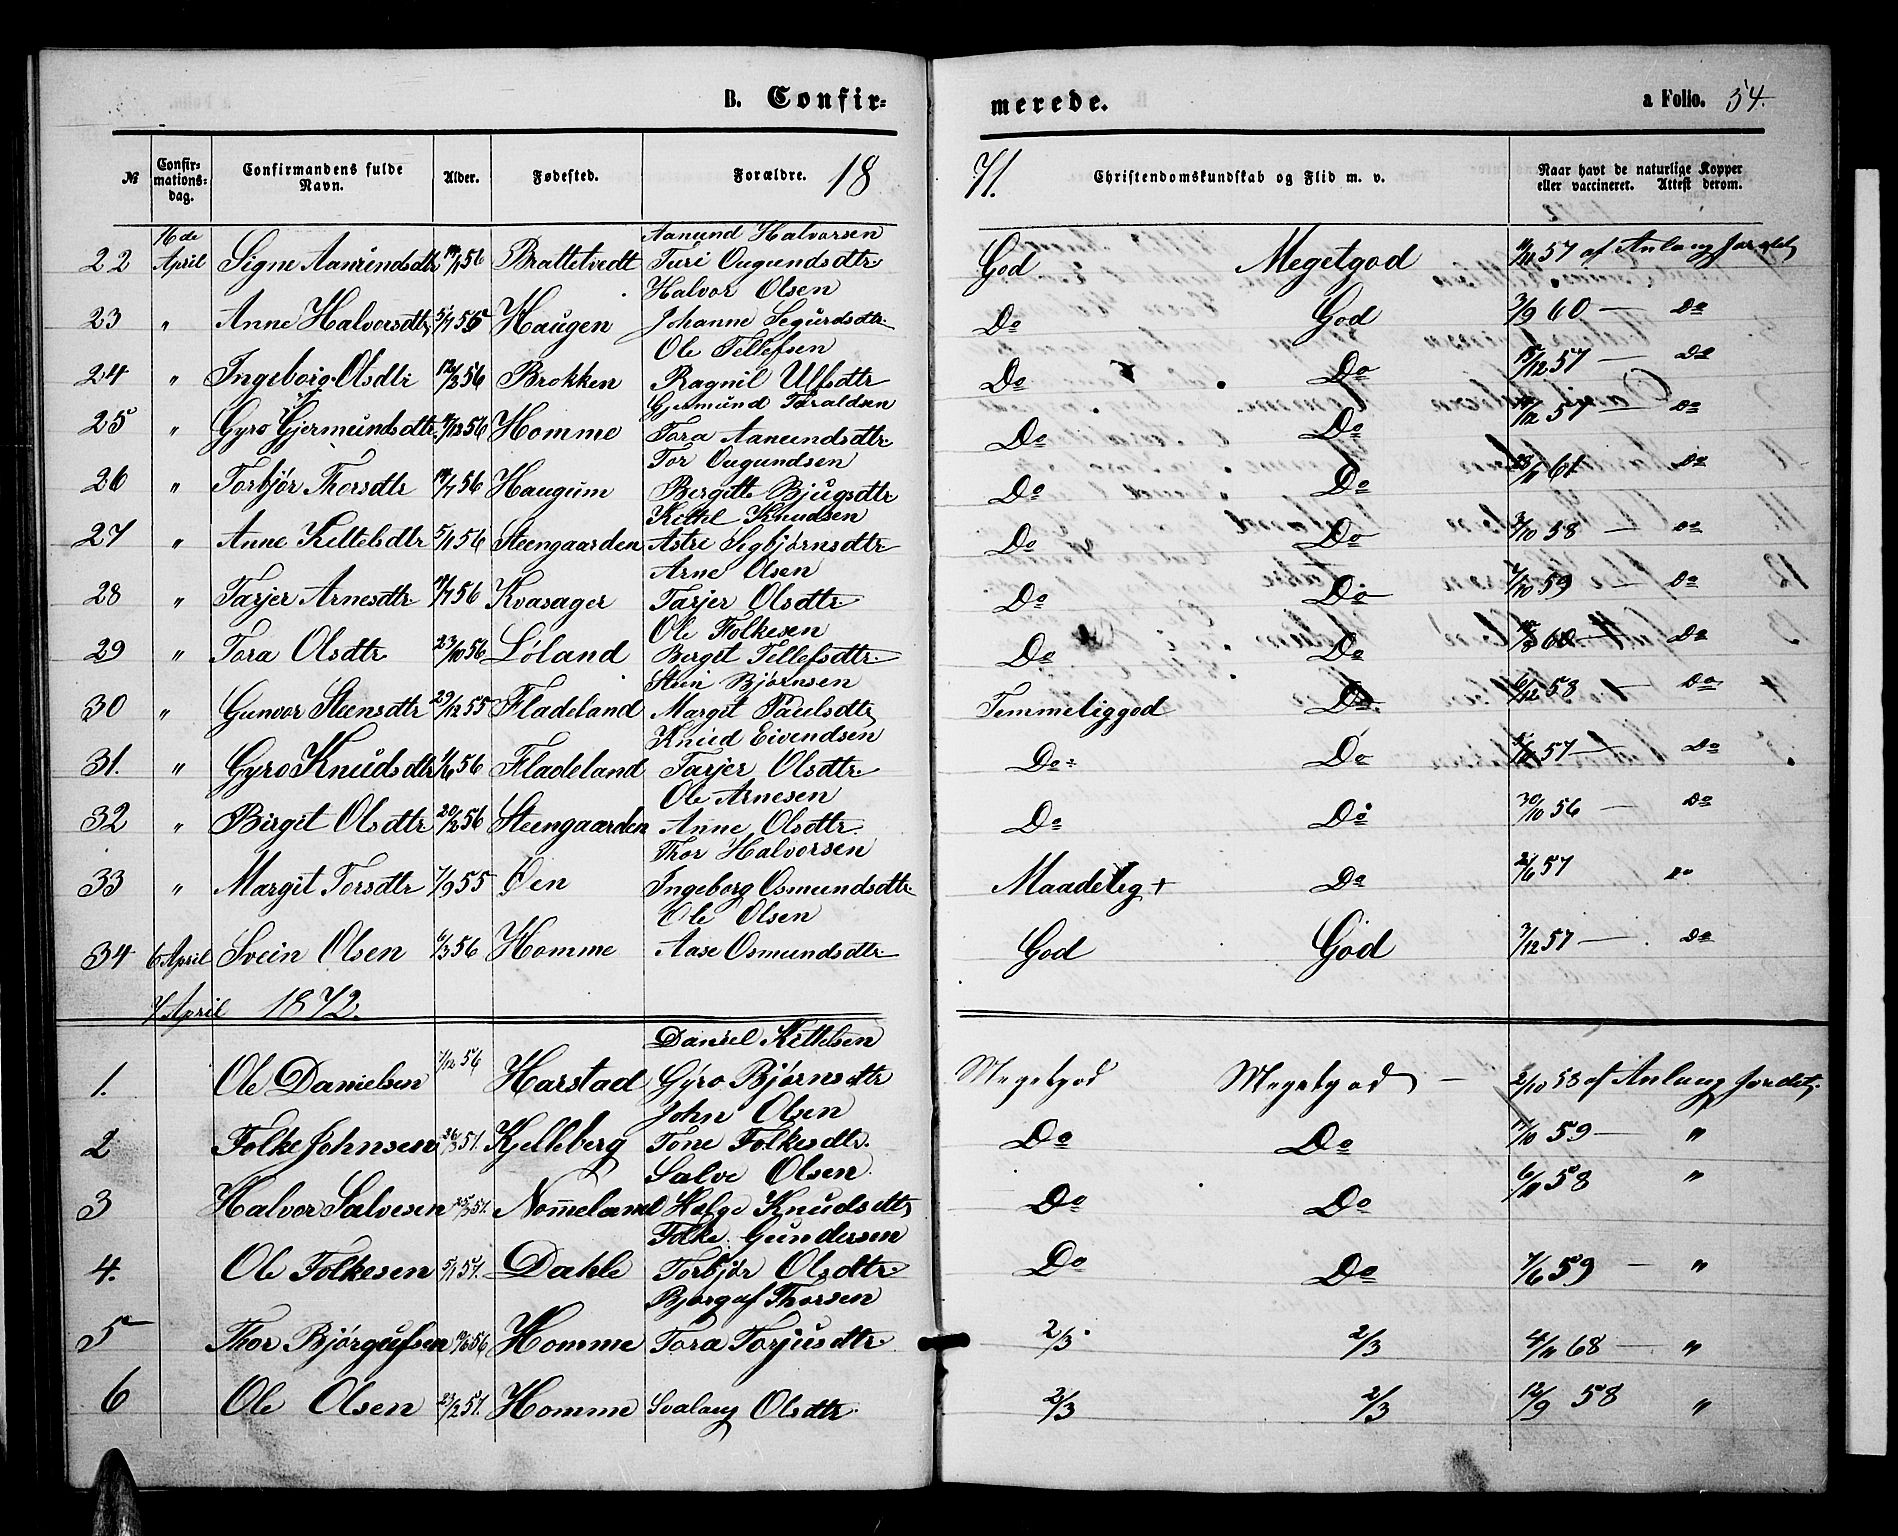 B. Confir-
merede.
a Folio. 54.
№ Confir-mations-dag. Confirmandens fulde Navn. Alder. Fødested. Forældre. 18
71. Christendomskundskab og Flid m. v. Naar havt de naturlige Kopper eller vaccineret. Attest derom.
16de Aanund Halvorsen
22 April Signe Aanundsdtr 56 Brattetvedt Turi Ougundsdtr. God Megetgod 57 af Anlaug Jordet
Halvor Olsen
23 " Anne Halvorsdtr 55 Haugen Johanne Segurdsdtr. Do God 3/9 60 — Do
Ole Tellefsen
24 " Ingeborg Olsdtr 12/3 56 Brokken Ragnil Ulfsdtr Do Do 15/12 57 — Do
Gjermund Taraldsen
25 " Gyro Gjermundsdtr. 56 Homme Tora Aanundsdtr. Do Do 57 — Do
Tor Ougundsen
26 " Torbjør Thorsdtr 56 Haugum Bergitte Bjugsdtr Do Do 61 Do
Kittel Knudsen
27 " Anne Kittelsdtr 5/1 56 Steengaarden Astri Segbjørnsdtr Do Do 3/10 58 — Do
Arne Olsen
28 " Tarjer Arnesdtr 56 Kvasager Tarjer Olsdtr Do Do 7/10 59 — Do
Ole Folkesen
29 " Tora Olsdtr 23/10 56 Løland Berget Tellefsdtr. Do Do 60 — Do
Stein Bjørnsen
30 " Gunvor Steensdtr 29/12 55 Fladeland Margit Paulsdtr Temmeliggod Do 6/12 58 — Do
Knud Eivendsen
31. " Gyro Knudsdtr 1/6 56 Fladeland Tarjer Olsdtr. Do Do 57 — Do
Ole Arnesen
32 " Birgit Olsdtr 20/2 56 Steengaarden Anne Olsdtr. Do Do 30/10 56 — Do
Thor Halvorsen
33 " Margit Torsdtr 7/9 55 Øen Ingeborg Osmundsdtr. Maadelig + Do 2/6 57 Do
Ole Olsen
34 6 April Svein Olsen 6/3 56 Homme Aase Osmundsdtr God God 3/12 57 — Do
7 April 1872.
Daniel Kittelsen
1. Ole Danielsen 7/12 56 Harstad Gyro Bjørnsdtr Megetgod Megetgod — 2/10 58 af Anlaug Jordet.
John Olsen
2 Folke Johnsen 26/3 57. Kjelleberg Tone Folkesdtr. Do Do 17/10 59 — "
Salve Olsen
3 Halvor Salvesen 25/3 57. Nomeland Helge Knudsdtr Do Do 6/11 58 "
Folke Gundersen
4. Ole Folkesen 5/1 57. Dahle Torbjør Olsdtr. Do Do 7/6 59 — "
Bjørguf Thorsen
5 Thor Bjørgufsen 10/6 56 Homme Tora Torjusdtr. 2/3. 2/3 4/11 68 — "
6 Ole Olsen 23/2 57. Homme Svalaug Olsdtr. 2/3 2/3 12/9 58 "